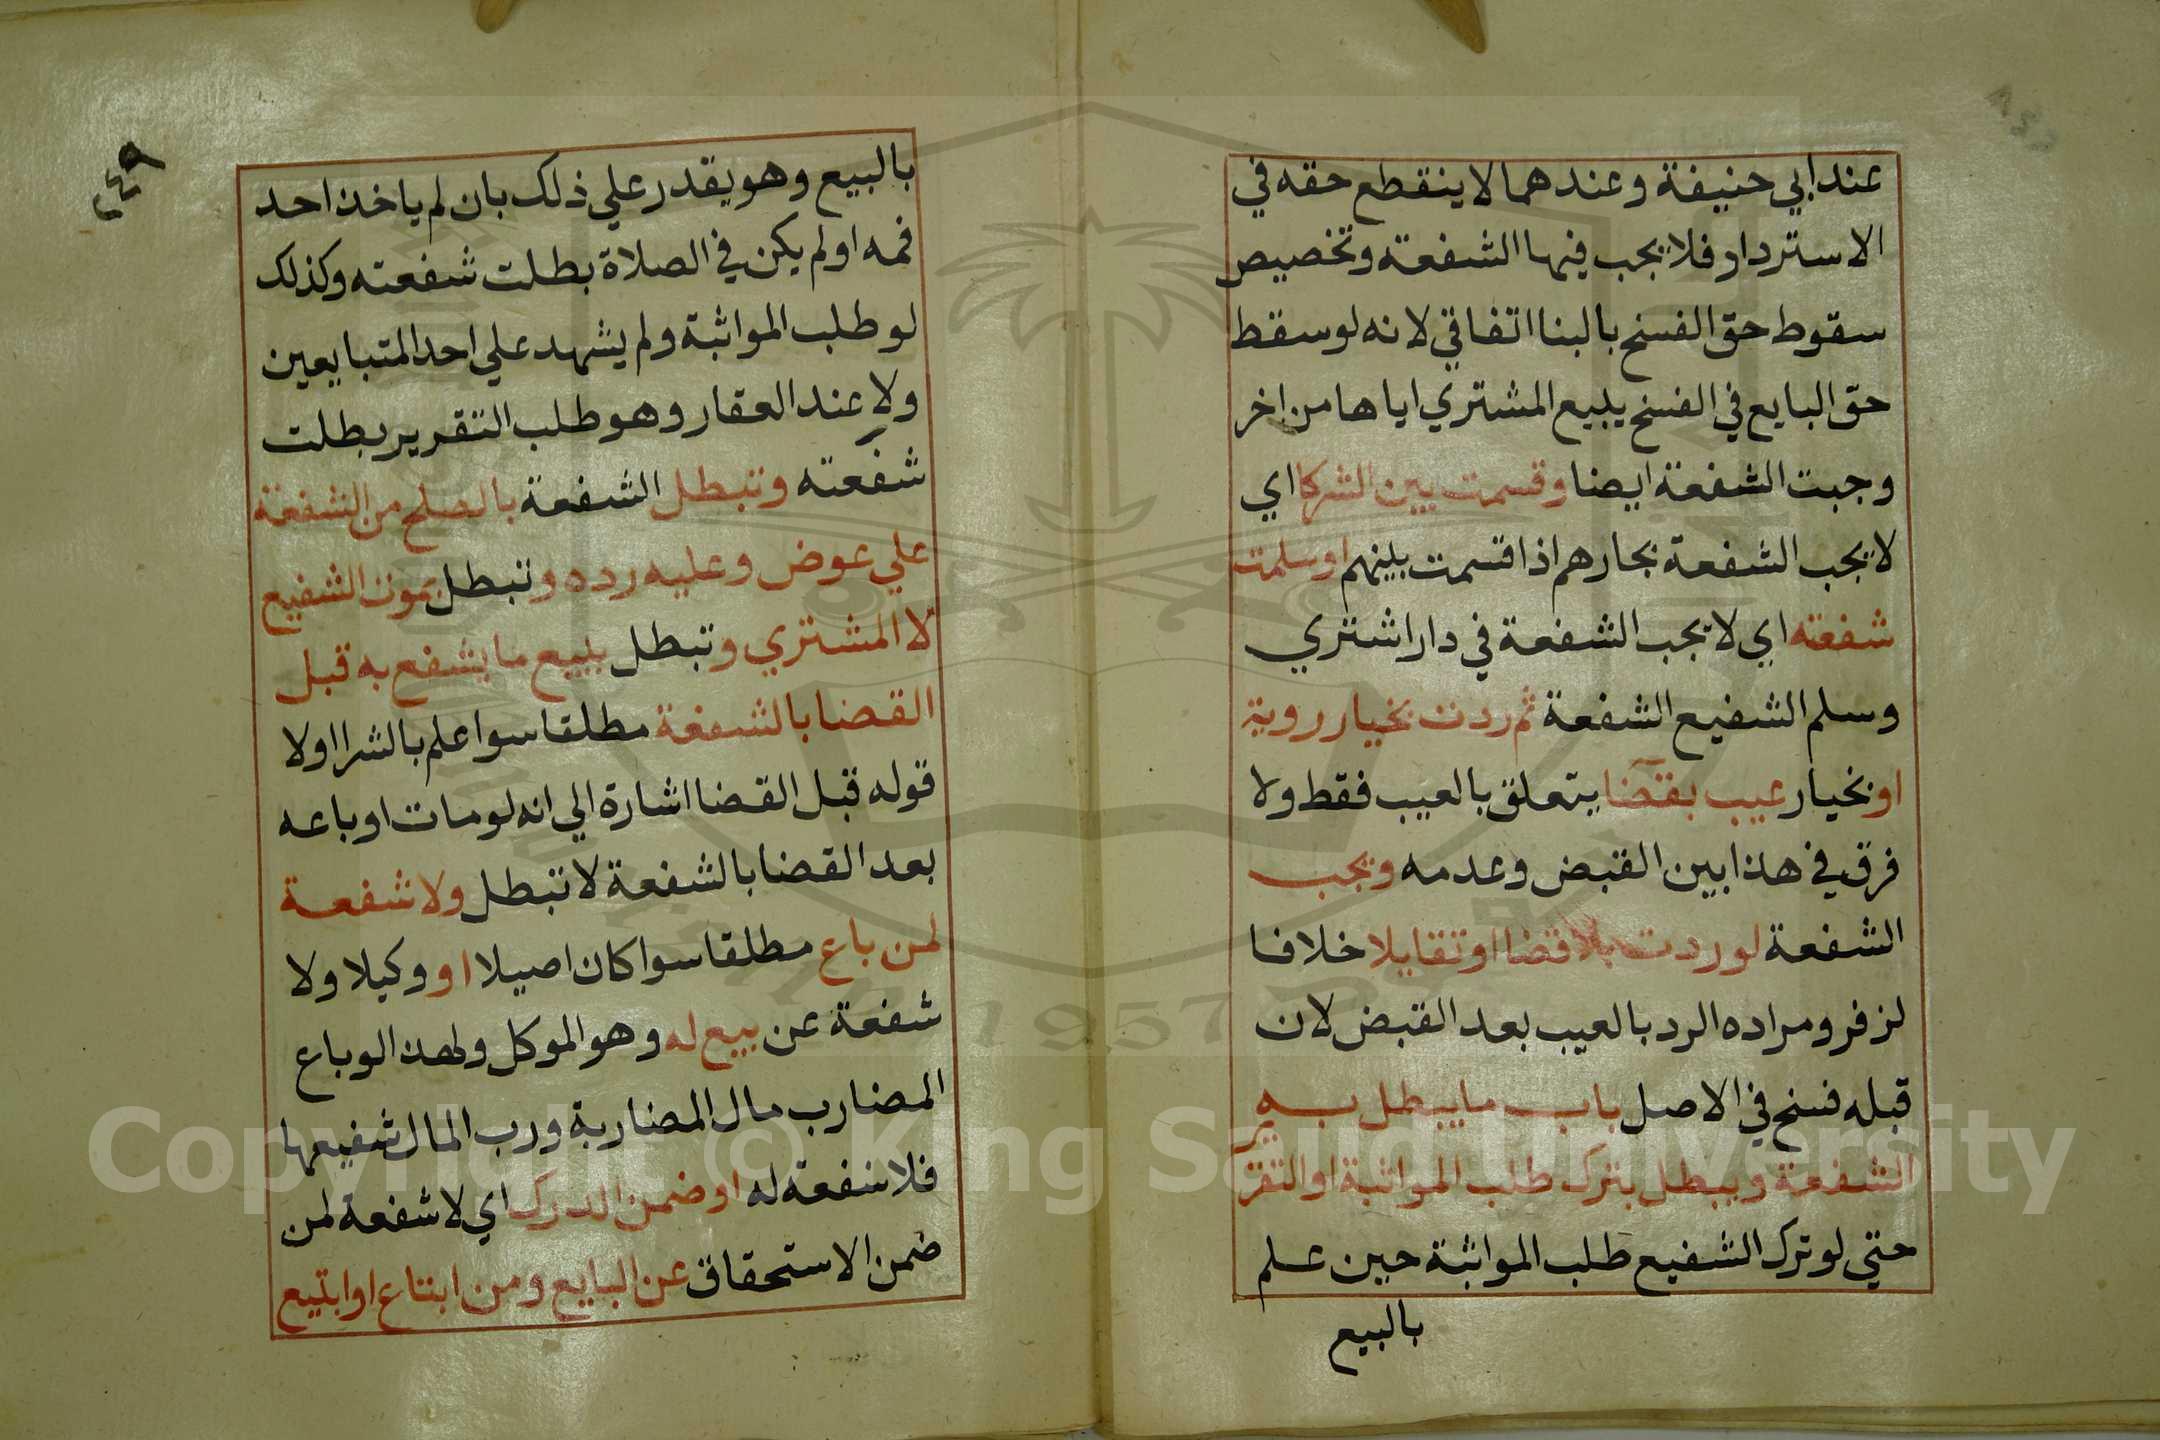 عند ابي حنيفة وعندهما لا ينقطع حقه في
الاسترداد فلا يجب فيها الشفعة وتخصيص
سقوط حق الفسخ بالبنا اتفاقي لانه لو سقط
حق البايع في الفسخ ببيع المشتري اياها من اخر
وجبت الشفعة ايضا وقسمت بين الشركا اي
لا يجب الشفعة بجارهم اذا قتسمت بينهم او سلمت
شفعته اي لا يجب الشفعة في دار اشتري
وسلم الشفيع الشفعة ثم ردت بخيار روية
او بخيار عيب بقضا يتعلق بالعيب فقط ولا
فرق في هذا بين القبض وعدمه وتجب
الشفعة لو ردت بلا قضا او تقايلا خلافا
لزفر ومراده الرد بالعيب بعد القبض لان
قبله فسخ في الاصل باب ما يبطل به
الشفعة ويبطل بترك طلب المواثبة او التقرير
حتي لو ترك الشفيع طلب المواثبة حين علم
بالبيع
٢٤٩
بالبيع وهو يقدر علي ذلك بان لم ياخذ احد
فمه او لم يكن في الصلاة بطلت شفعته وكذلك
لو طلب المواثبة ولم يشهد علي احد المتبايعين
ولا عند العقار وهو طلب التقرير بطلت
شفعته وتبطل الشفعة بالصلح من الشفعة
علي عوض وعليه رده وتبطل بموت الشفيع
لا المشتري وتبطل ببيع ما يشفع به قبل
القضا بالشفعة مطلقا سوا علم بالشرا او لا
قوله قبل القضا اشارة الي انه لو مات او باعه
بعد القضا بالشفعة لا تبطل ولا شفعة
لمن باع مطلقا سوا كان اصيلا او وكيلا ولا
شفعة عن بيع له وهو الموكل ولهذا لو باع
المضارب مال المضاربة ورب المال شفيعها
فلا شفعة له او ضمن الدرك اي لا شفعة لمن
ضمن الاستحقاق عن البايع ومن ابتاع او ابتيع
Copyright © King Saud University
1957